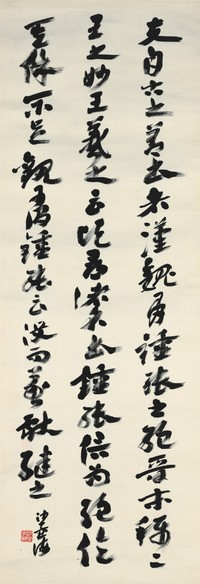 夫自古之善書者漢魏有鍾張之絕晉末稱二
王之妙王羲之云頃尋諸名書鍾張信為絕倫
其餘不足觀可謂鍾張云沒而羲獻繼之
沙孟海